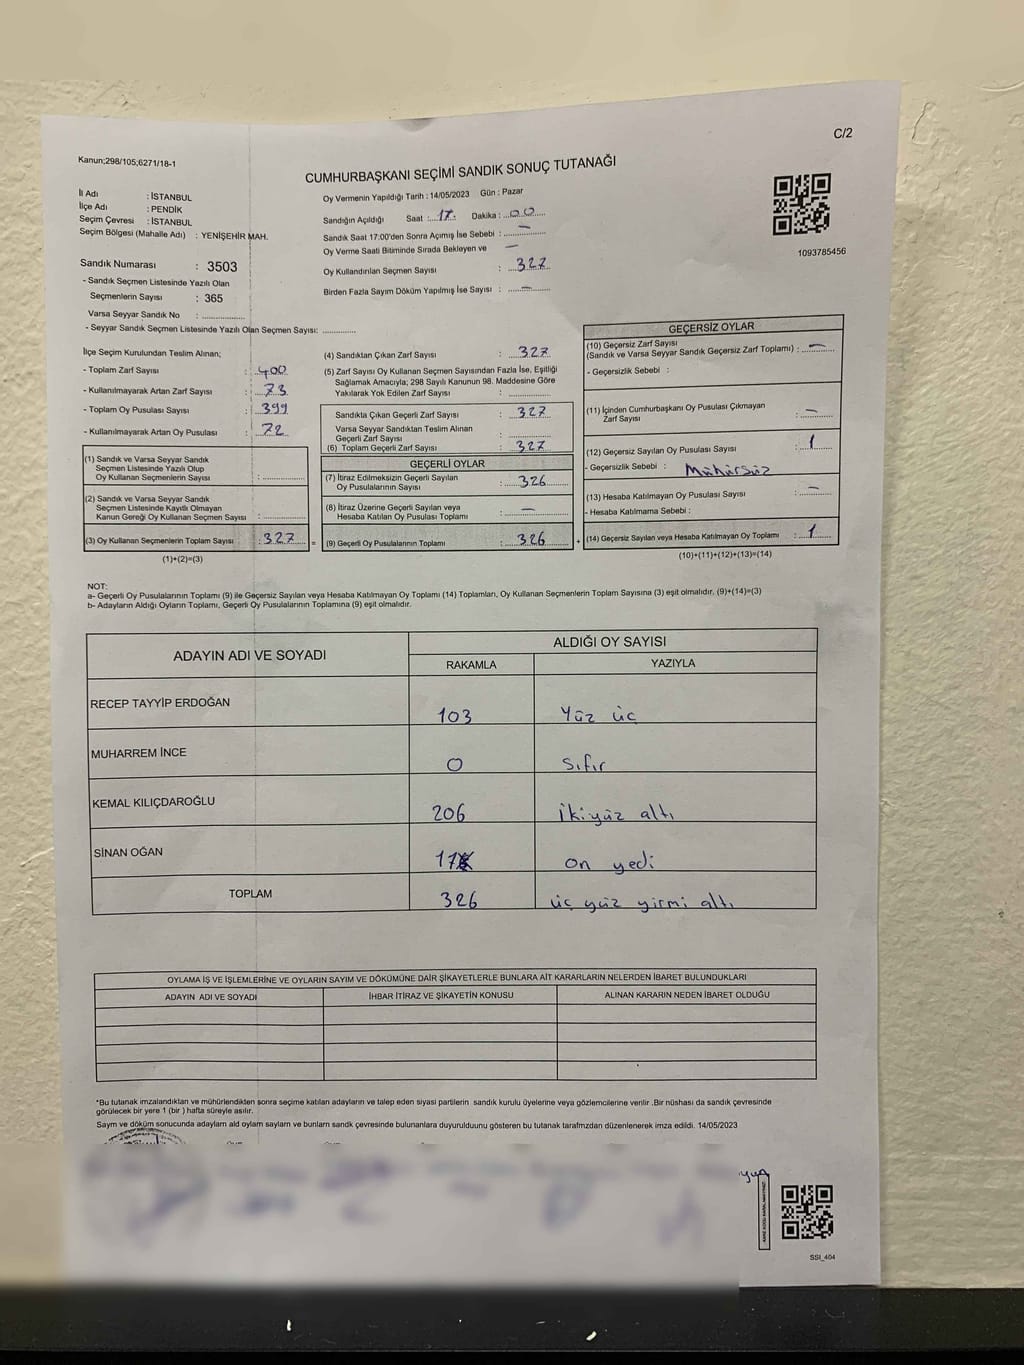 C/2
Kanun;298/105;6271/18-1
CUMHURBAŞKANI SEÇİMİ SANDIK SONUÇ TUTANAĞI
İl Adı : İSTANBUL
İlçe Adı : PENDİK
Seçim Çevresi : İSTANBUL
Seçim Bölgesi (Mahalle Adı) : YENİŞEHİR MAH.
Sandık Numarası : 3503
- Sandık Seçmen Listesinde Yazılı Olan
Seçmenlerin Sayısı : 365
Varsa Seyyar Sandık No : ..................
- Seyyar Sandık Seçmen Listesinde Yazılı Olan Seçmen Sayısı: ............
Oy Vermenin Yapıldığı Tarih : 14/05/2023 Gün : Pazar
Sandığın Açıldığı Saat : 17. Dakika : 00
Sandık Saat 17:00'den Sonra Açılmış İse Sebebi : –
Oy Verme Saati Bitiminde Sırada Bekleyen ve –
Oy Kullandırılan Seçmen Sayısı : 327
Birden Fazla Sayım Döküm Yapılmış İse Sayısı : –
1093785456
İlçe Seçim Kurulundan Teslim Alınan;
- Toplam Zarf Sayısı : 400
- Kullanılmayarak Artan Zarf Sayısı : 73
- Toplam Oy Pusulası Sayısı : 399
- Kullanılmayarak Artan Oy Pusulası : 72
(1) Sandık ve Varsa Seyyar Sandık
Seçmen Listesinde Yazılı Olup
Oy Kullanan Seçmenlerin Sayısı : ............
(2) Sandık ve Varsa Seyyar Sandık
Seçmen Listesinde Kayıtlı Olmayan
Kanun Gereği Oy Kullanan Seçmen Sayısı : ............
(3) Oy Kullanan Seçmenlerin Toplam Sayısı : 327 =
(1)+(2)=(3)
(4) Sandıktan Çıkan Zarf Sayısı : 327
(5) Zarf Sayısı Oy Kullanan Seçmen Sayısından Fazla İse, Eşitliği
Sağlamak Amacıyla; 298 Sayılı Kanunun 98. Maddesine Göre
Yakılarak Yok Edilen Zarf Sayısı : ............
Sandıkta Çıkan Geçerli Zarf Sayısı : 327
Varsa Seyyar Sandıktan Teslim Alınan
Geçerli Zarf Sayısı : ............
(6) Toplam Geçerli Zarf Sayısı : 327
GEÇERLİ OYLAR
(7) İtiraz Edilmeksizin Geçerli Sayılan
Oy Pusulalarının Sayısı : 326
(8) İtiraz Üzerine Geçerli Sayılan veya
Hesaba Katılan Oy Pusulası Toplamı : –
(9) Geçerli Oy Pusulalarının Toplamı : 326 +
GEÇERSİZ OYLAR
(10) Geçersiz Zarf Sayısı
(Sandık ve Varsa Seyyar Sandık Geçersiz Zarf Toplamı) : –
- Geçersizlik Sebebi :
(11) İçinden Cumhurbaşkanı Oy Pusulası Çıkmayan
Zarf Sayısı : –
(12) Geçersiz Sayılan Oy Pusulası Sayısı : 1
- Geçersizlik Sebebi : Mühürsüz
(13) Hesaba Katılmayan Oy Pusulası Sayısı : –
- Hesaba Katılmama Sebebi :
(14) Geçersiz Sayılan veya Hesaba Katılmayan Oy Toplamı : 1
(10)+(11)+(12)+(13)=(14)
NOT:
a- Geçerli Oy Pusulalarının Toplamı (9) ile Geçersiz Sayılan veya Hesaba Katılmayan Oy Toplamı (14) Toplamları, Oy Kullanan Seçmenlerin Toplam Sayısına (3) eşit olmalıdır. (9)+(14)=(3)
b- Adayların Aldığı Oyların Toplamı, Geçerli Oy Pusulalarının Toplamına (9) eşit olmalıdır.
ADAYIN ADI VE SOYADI ALDIĞI OY SAYISI
RAKAMLA YAZIYLA
RECEP TAYYİP ERDOĞAN 103 Yüz üç
MUHARREM İNCE 0 Sıfır
KEMAL KILIÇDAROĞLU 206 İkiyüz altı
SİNAN OĞAN 17 on yedi
TOPLAM 326 üç yüz yirmi altı
OYLAMA İŞ VE İŞLEMLERİNE VE OYLARIN SAYIM VE DÖKÜMÜNE DAİR ŞİKAYETLERLE BUNLARA AİT KARARLARIN NELERDEN İBARET BULUNDUKLARI
ADAYIN ADI VE SOYADI İHBAR İTİRAZ VE ŞİKAYETİN KONUSU ALINAN KARARIN NEDEN İBARET OLDUĞU
*Bu tutanak imzalandıktan ve mühürlendikten sonra seçime katılan adayların ve talep eden siyasi partilerin sandık kurulu üyelerine veya gözlemcilerine verilir .Bir nüshası da sandık çevresinde
görülecek bir yere 1 (bir ) hafta süreyle asılır.
Sayım ve döküm sonucunda adayların ald oyların sayların ve bunların sandık çevresinde bulunanlara duyurulduunu gösteren bu tutanak tarafımzdan düzenlenerek imza edildi. 14/05/2023
SSI_404